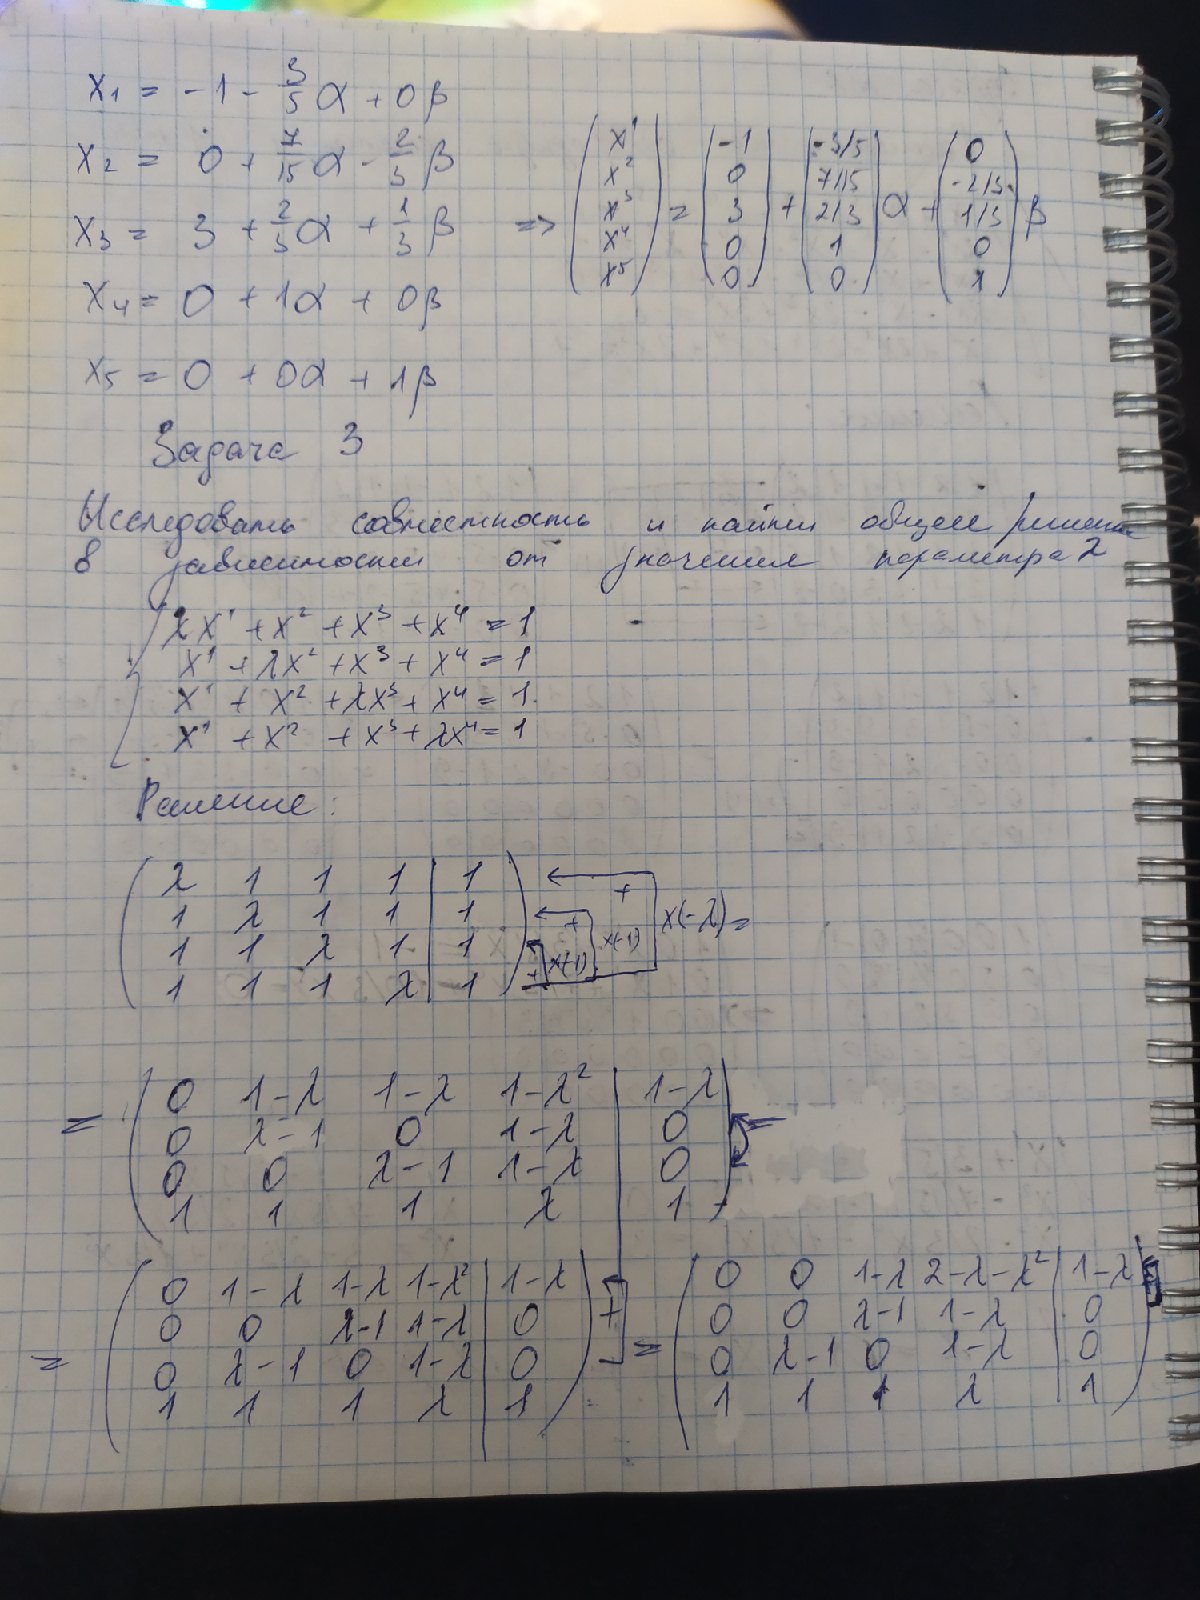 x₁ = -1 - 3/5 α + 0β
x₂ = 0 + 7/15 α - 2/3 β
x₃ = 3 + 2/3 α + 1/3 β
x₄ = 0 + 1α + 0β
x₅ = 0 + 0α + 1β
=> (x¹ x² x³ x⁴ x⁵) = (-1 0 3 0 0) + (-3/5 7/15 2/3 1 0) α + (0 -2/3 1/3 0 1) β
Задача 3
Исследовать совместность и найти общее решение
в зависимости от значения параметра λ
λx¹ + x² + x³ + x⁴ = 1
x¹ + λx² + x³ + x⁴ = 1
x¹ + x² + λx³ + x⁴ = 1.
x¹ + x² + x³ + λx⁴ = 1
Решение:
λ 1 1 1 | 1
1 λ 1 1 | 1
1 1 λ 1 | 1
1 1 1 λ | 1
+ x(-1) + x(-1) + x(-λ) =
= 0 1-λ 1-λ 1-λ² | 1-λ
0 λ-1 0 1-λ | 0
0 0 λ-1 1-λ | 0
1 1 1 λ | 1
= 0 1-λ 1-λ 1-λ² | 1-λ
0 0 λ-1 1-λ | 0
0 λ-1 0 1-λ | 0
1 1 1 λ | 1
+
= 0 0 1-λ 2-λ-λ² | 1-λ
0 0 λ-1 1-λ | 0
0 λ-1 0 1-λ | 0
1 1 1 λ | 1